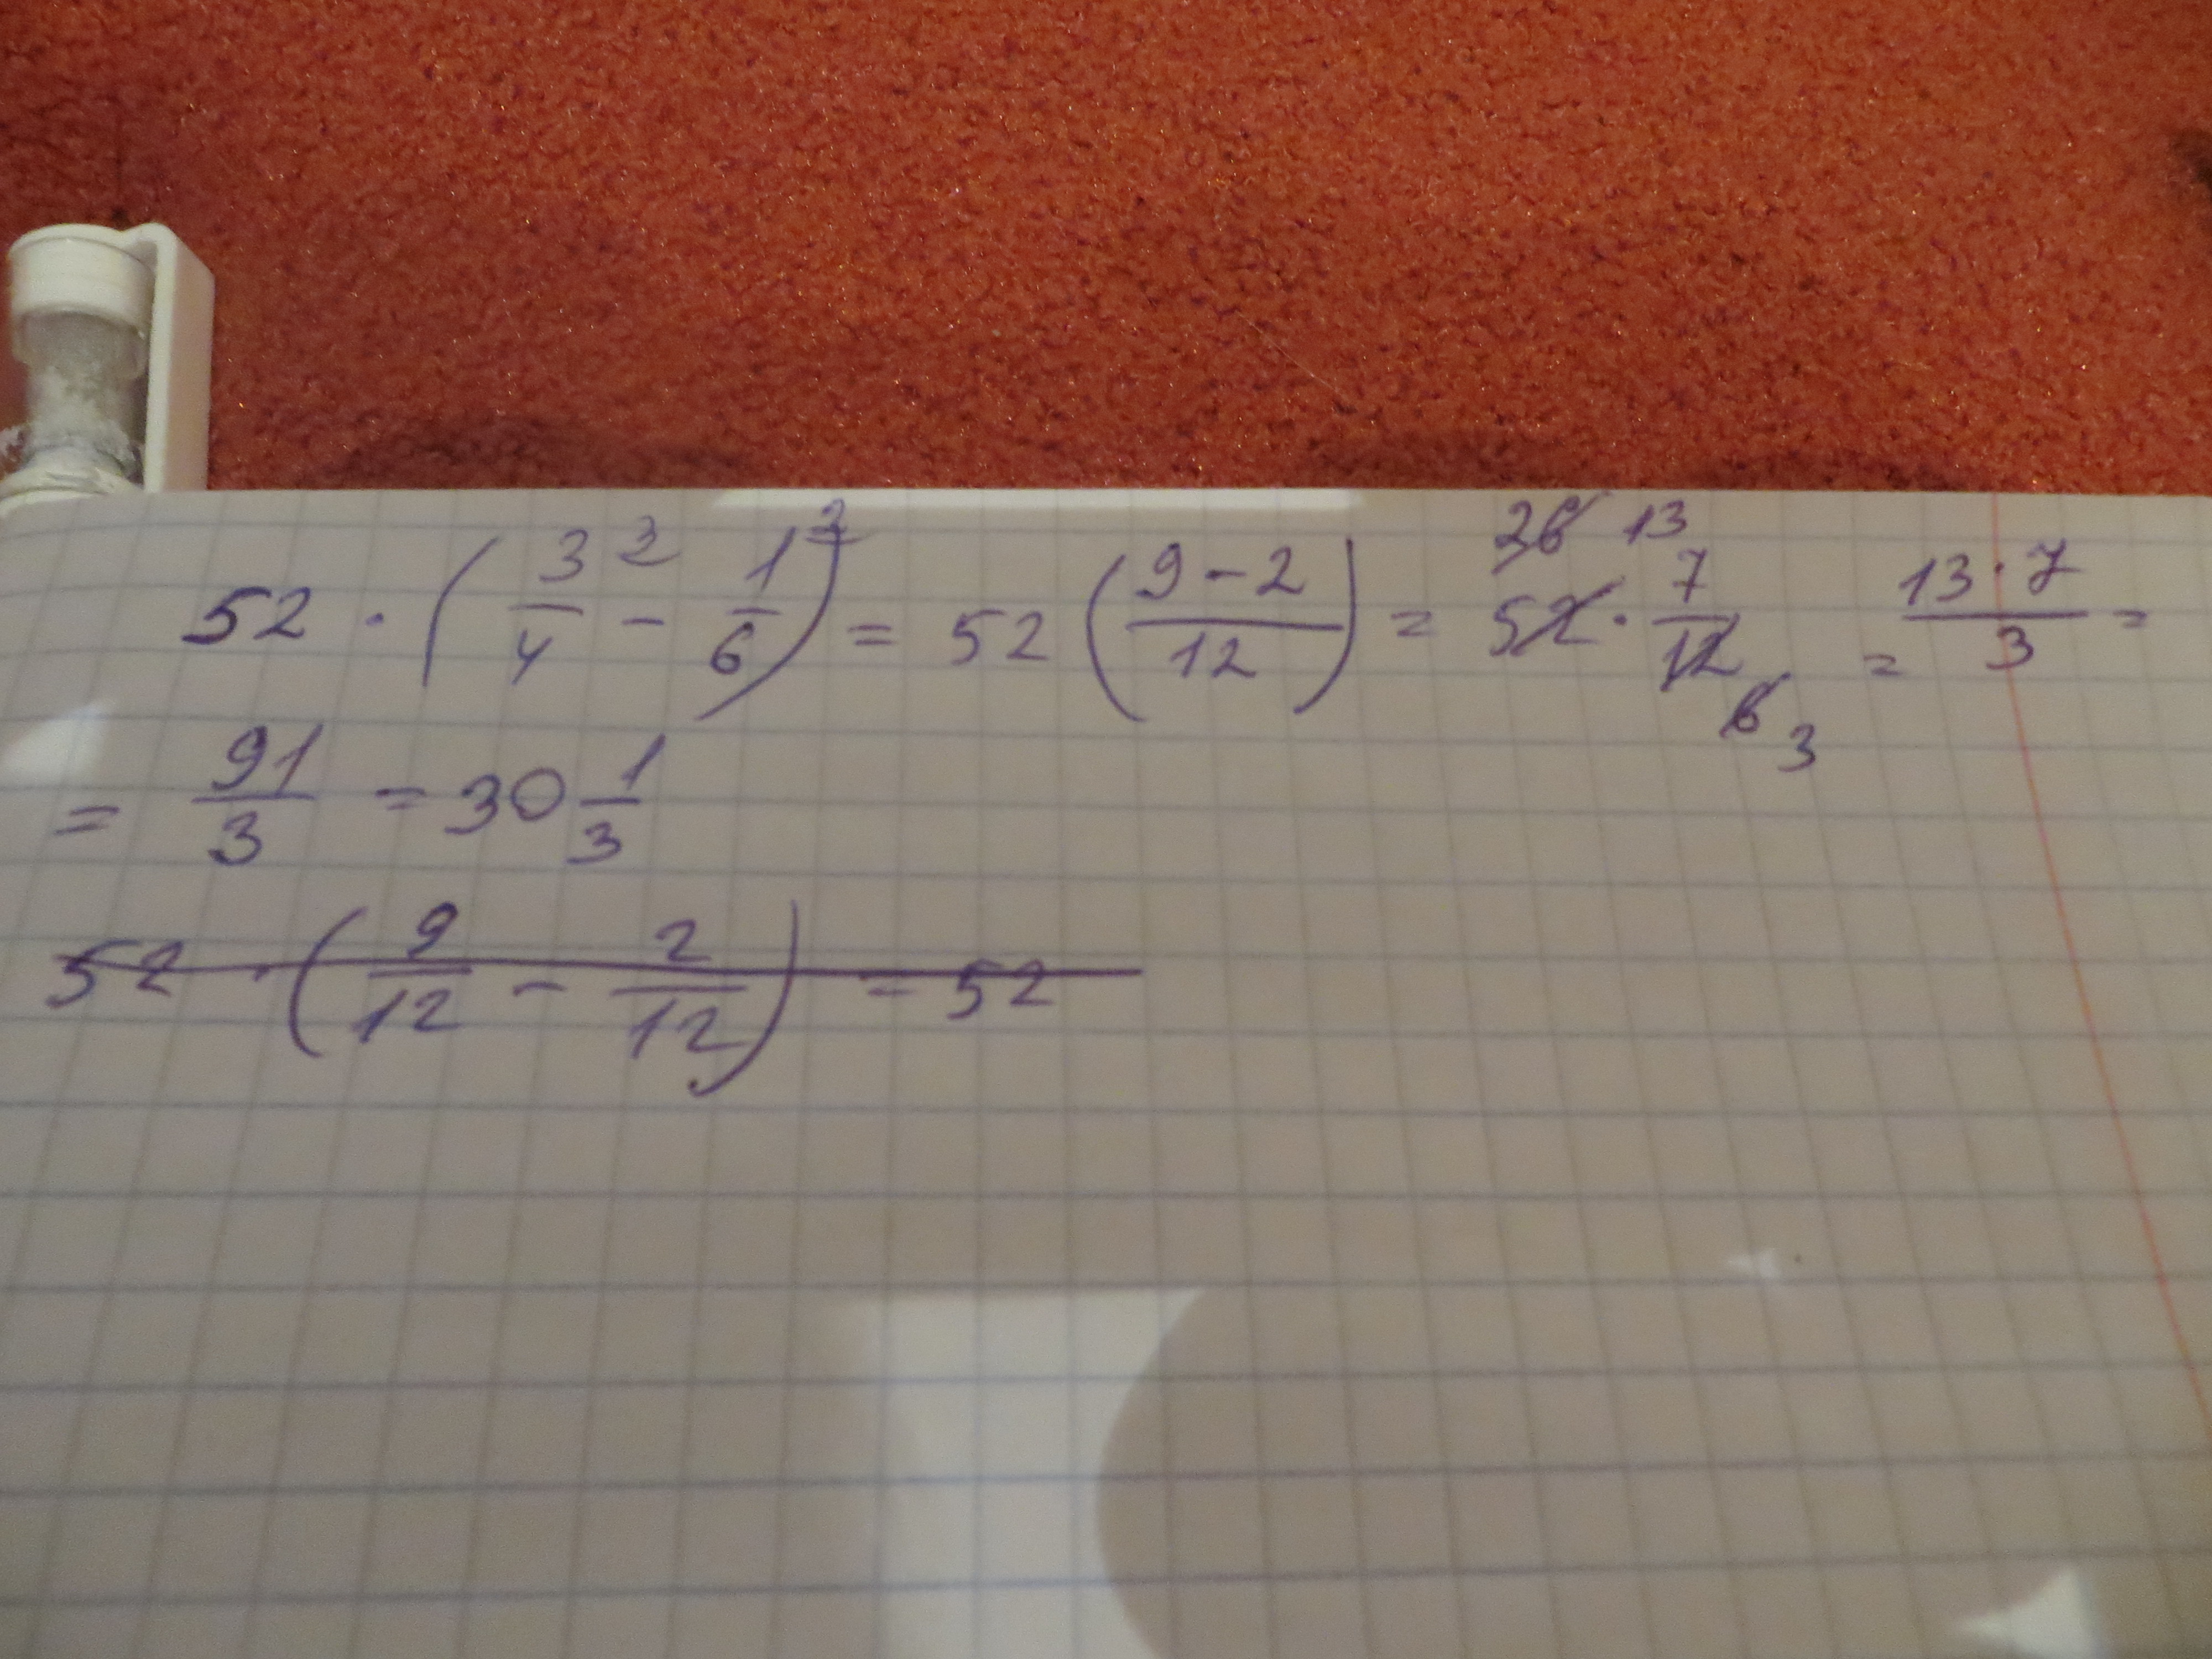 52 · (3/4 ³ − 1/6 ²) = 52 (9−2/12) = 52 26 13 · 7/12 6 3 = 13·7/3 =
= 91/3 = 30 1/3
52 · (9/12 − 2/12) = 52